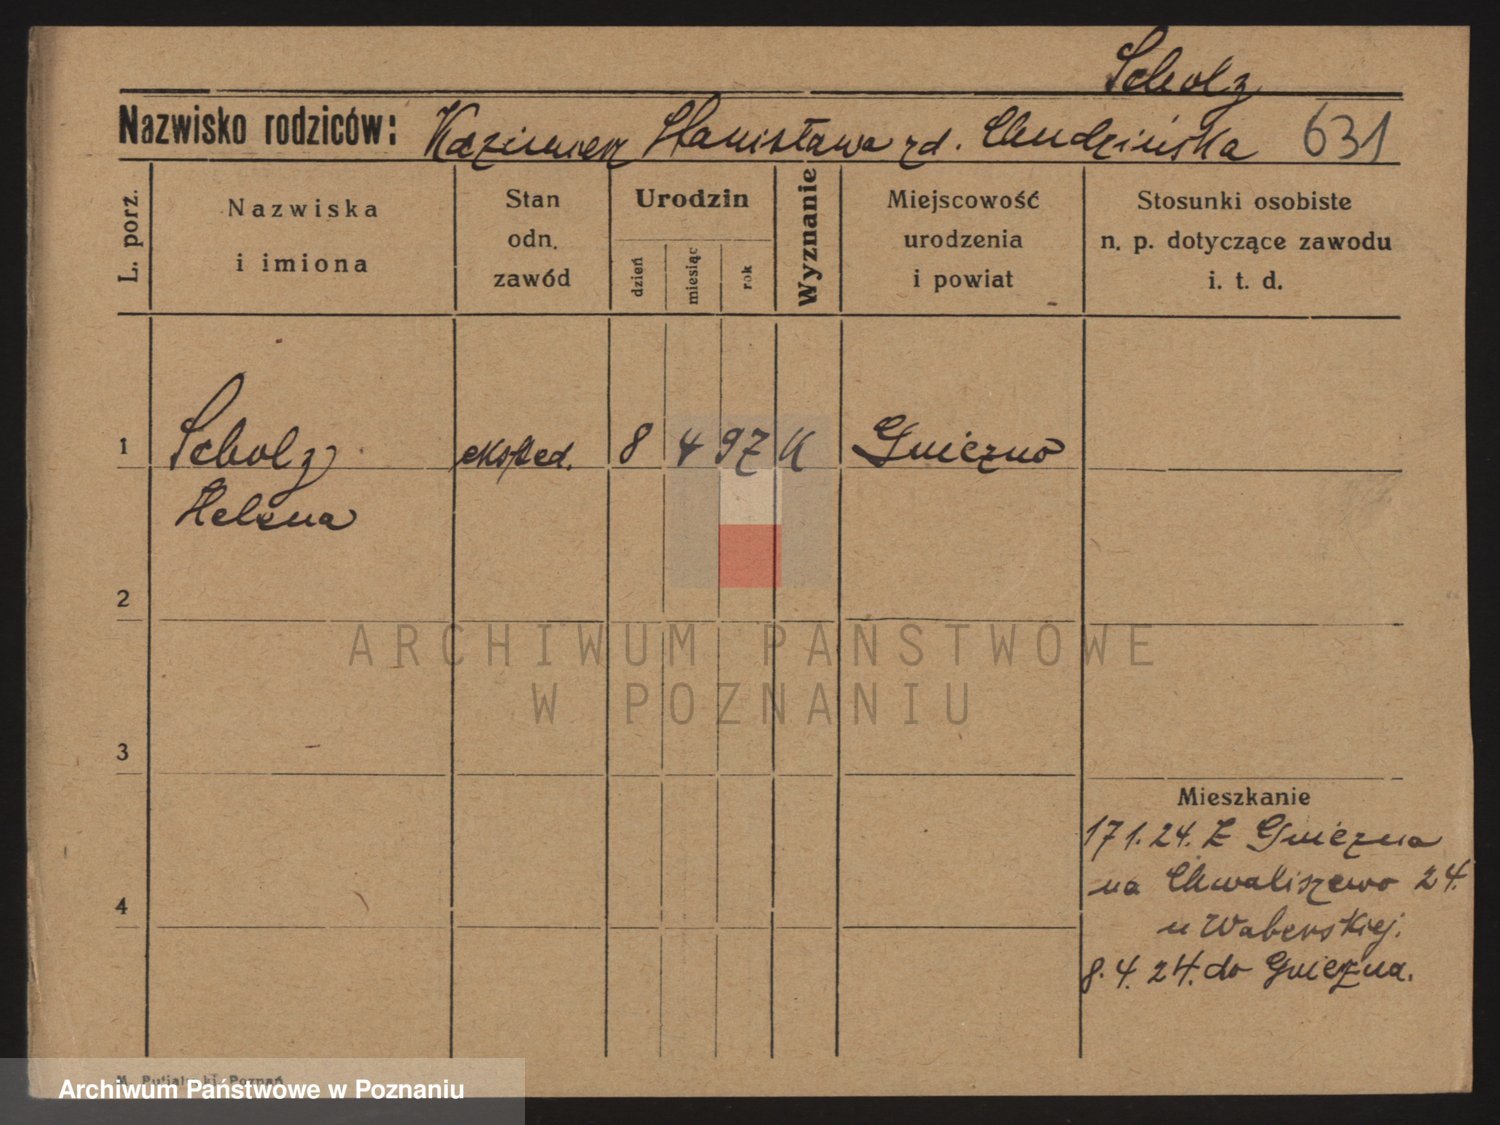 Scholz
Nazwisko rodziców: Kazimierz Stanisława zd. Chudzińska 631
L. porz.
Nazwiska
i imiona
Stan
odn.
zawód
Urodzin
dzień
miesiąc
rok
Wyznanie
Miejscowość
urodzenia
i powiat
Stosunki osobiste
n. p. dotyczące zawodu
i. t. d.
1 Scholz eksped. 8 4 97 K Gniezno
Helena
2
ARCHIWUM PAŃSTWOWE
W POZNANIU
3
Mieszkanie
17 1. 24. Z Gniezna
na Chwaliszewo 24.
u Waberskiej.
4
8. 4. 24. do Gniezna.
Poznań
Archiwum Państwowe w Poznaniu